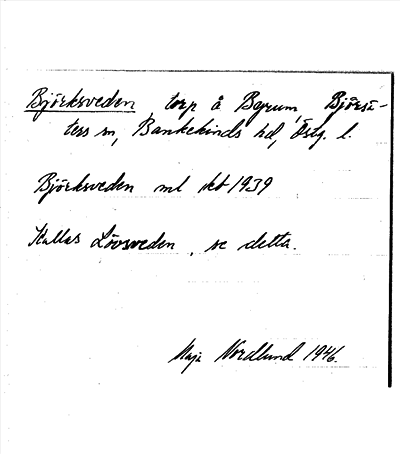 Björksveden torp å Byrum, Björsä-
ters sn, Bankekinds hd, Östg. l.
Björksveden ml kb 1939
Kallas Lövsveden, se detta.
Maja Nordlund 1946.